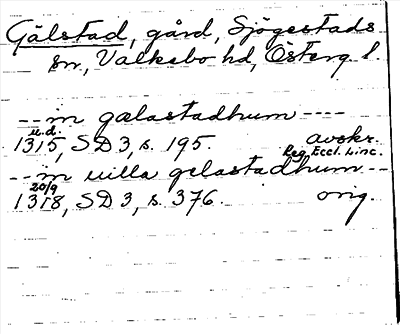 Gälstad, gård, Sjögestads
sn, Valkebo hd, Österg l.
--- in gælastadhum ----
u.d.
1315, SD 3, s. 195. avskr.
Reg. Eccl. Linc.
--- in uilla gelastadhum ---
20/9
1318, SD 3, s. 376. orig.